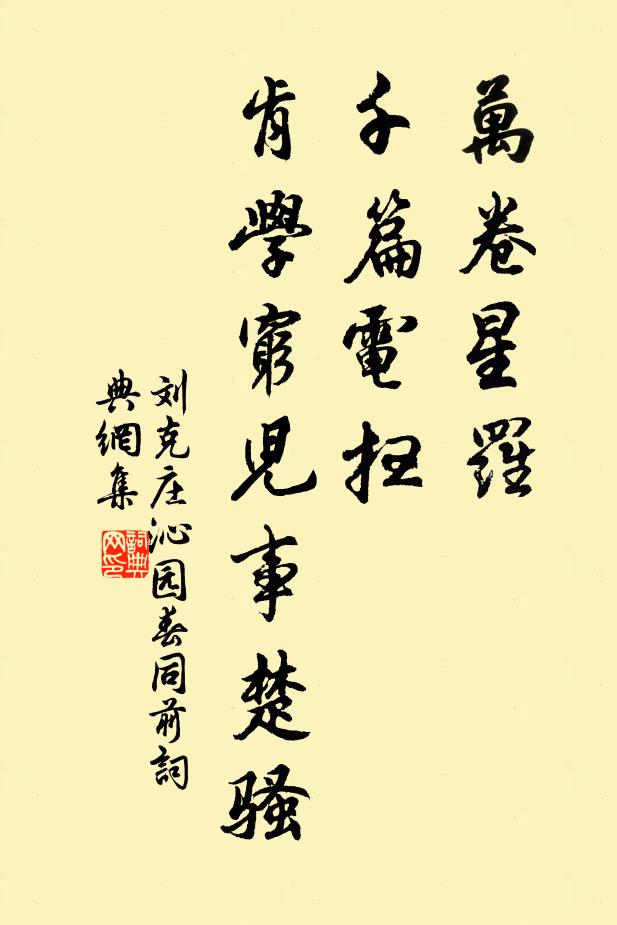 萬卷星羅
千篇電扫
肯學窮児事楚骚
刘克庄沁园春同前詞
典網集
詞典网印